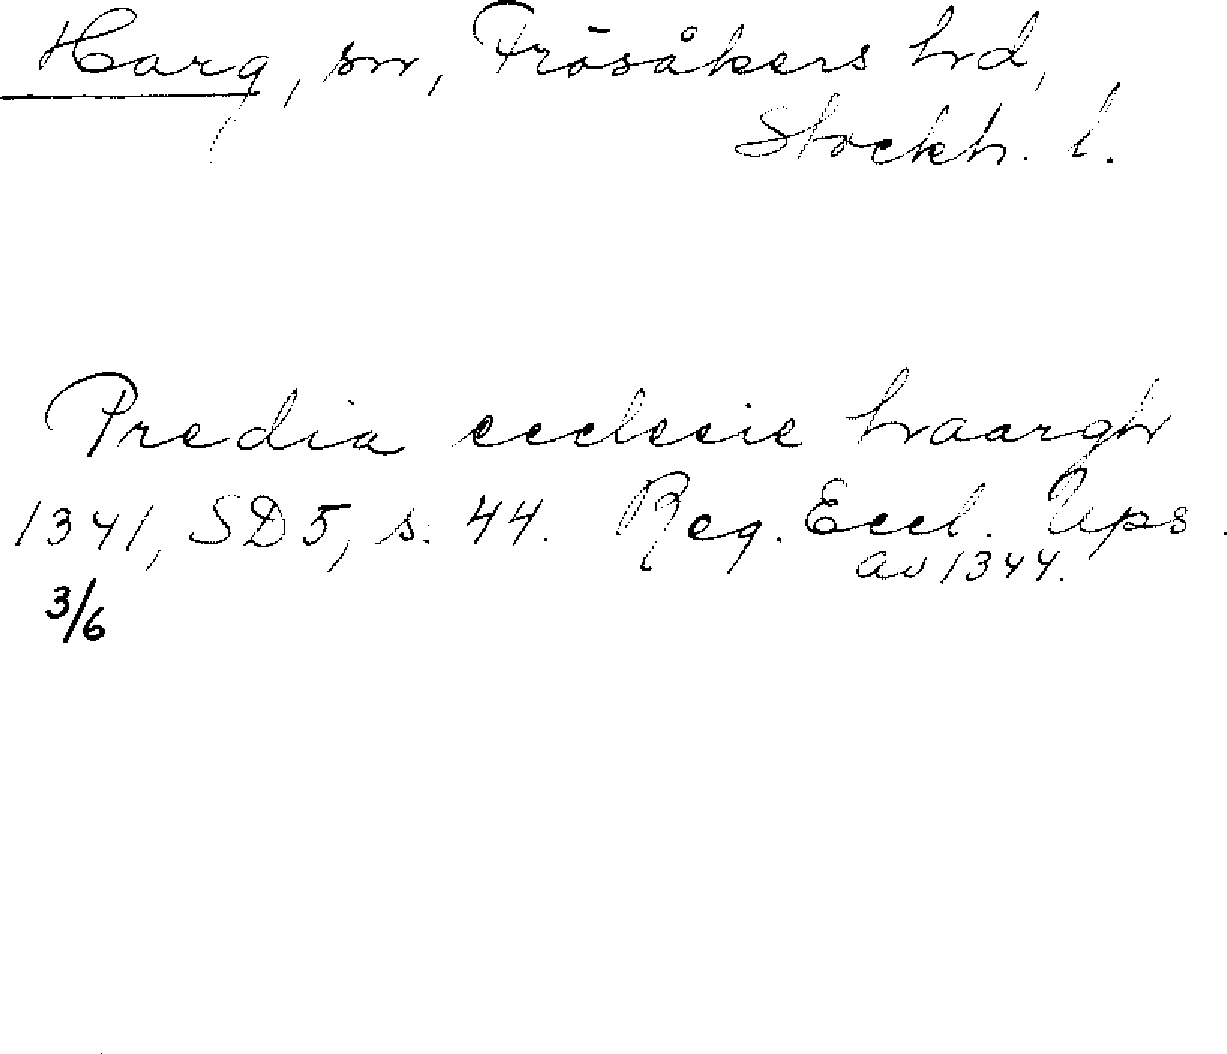 Harg, sn, Frösåkers hd,
Stockh. l.
Predia ecclesie haargh
1341, SD 5, s. 44. Reg. Eccl. Ups.
av 1344.
3/6